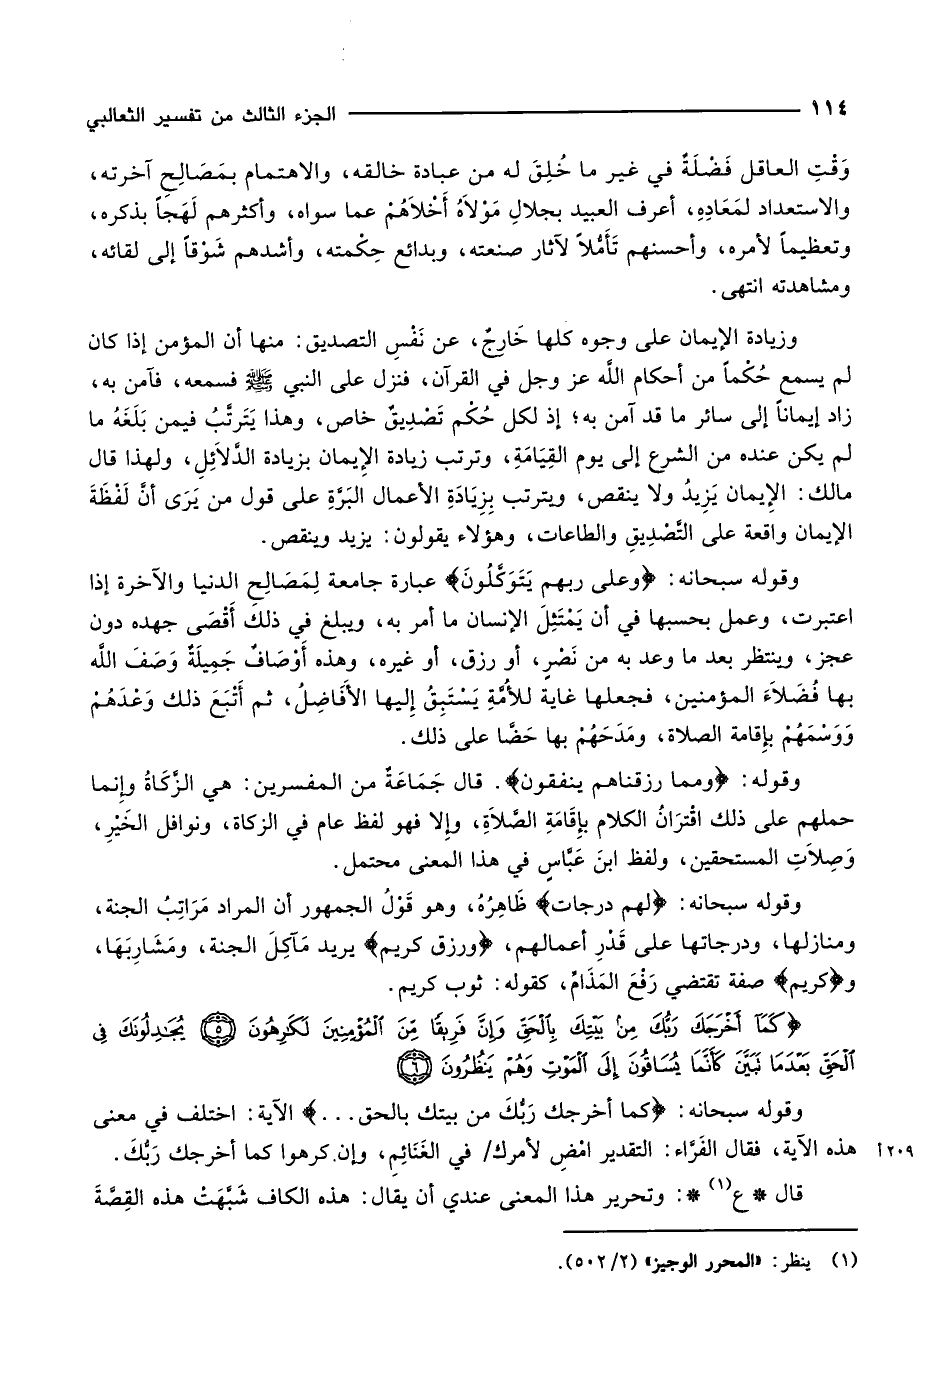 ١١٤ الجزء الثالث من تفسير الثعالبي
وَقْتِ العاقل فَضْلَةٌ في غير ما خُلِقَ له من عبادة خالقه، والاهتمام بمَصَالِحِ آخرته،
والاستعداد لمَعَادِهِ، أعرف العبيد بجلالِ مَوْلاَهُ أَخْلاَهُمْ عما سواه، وأكثرهم لَهَجاً بذكره،
وتعظيماً لأمره، وأحسنهم تَأَمُّلاً لآثار صنعته، وبدائع حِكْمته، وأشدهم شَوْقاً إلى لقائه،
ومشاهدته انتهى.
وزيادة الإيمان على وجوه كلها خَارِجٌ، عن نَفْسِ التصديق: منها أن المؤمن إذا كان
لم يسمع حُكْماً من أحكام اللَّه عز وجل في القرآن، فنزل على النبي ﷺ فسمعه، فآمن به،
زاد إيماناً إلى سائر ما قد آمن به؛ إذ لكل حُكْم تَصْدِيقٌ خاص، وهذا يَتَرتَّبُ فيمن بَلَغَهُ ما
لم يكن عنده من الشرع إلى يوم القِيَامَةِ، وترتب زيادة الإيمان بزيادة الدَّلاَئِلِ، ولهذا قال
مالك: الإيمان يَزِيدُ ولا ينقص، ويترتب بِزِيَادَةِ الأعمال البَرَّةِ على قول من يَرَى أنَّ لَفْظَةَ
الإيمان واقعة على التَّصْدِيقِ والطاعات، وهؤلاء يقولون: يزيد وينقص.
وقوله سبحانه: ﴿وعلى ربهم يَتَوَكَّلُونَ﴾ عبارة جامعة لِمَصَالِحِ الدنيا والآخرة إذا
اعتبرت، وعمل بحسبها في أن يَمْتَثِلَ الإنسان ما أمر به، ويبلغ في ذلك أَقْصَى جهده دون
عجز، وينتظر بعد ما وعد به من نَصْرٍ، أو رزق، أو غيره، وهذه أَوْصَافٌ جَمِيلَةٌ وَصَفَ اللَّه
بها فُضَلاَءَ المؤمنين، فجعلها غاية للأُمَّةِ يَسْتَبِقُ إليها الأَفَاضِلُ، ثم أَتْبَعَ ذلك وَعْدَهُمْ
وَوَسْمَهُمْ بإقامة الصلاة، ومَدَحَهُمْ بها حَضًّا على ذلك.
وقوله: ﴿ومما رزقناهم ينفقون﴾. قال جَمَاعَةٌ من المفسرين: هي الزَّكَاةُ وإنما
حملهم على ذلك اقْتِرَانُ الكلام بإقَامَةِ الصَّلاَةِ، وإلا فهو لفظ عام في الزكاة، ونوافل الخَيْرِ،
وَصِلاَتِ المستحقين، ولفظ ابنَ عَبَّاسٍ في هذا المعنى محتمل.
وقوله سبحانه: ﴿لهم درجات﴾ ظَاهِرُهُ، وهو قَوْلُ الجمهور أن المراد مَرَاتِبُ الجنة،
ومنازلها، ودرجاتها على قَدْرِ أعمالهم، ﴿ورزق كريم﴾ يريد مَآكِلَ الجنة، ومَشَارِبَهَا،
و﴿كريم﴾ صفة تقتضي رَفْعَ المَذَامِّ، كقوله: ثوب كريم.
﴿كَمَآ أَخْرَجَكَ رَبُّكَ مِنۢ بَيْتِكَ بِٱلْحَقِّ وَإِنَّ فَرِيقًا مِّنَ ٱلْمُؤْمِنِينَ لَكَٰرِهُونَ ۝٥ يُجَٰدِلُونَكَ فِى
ٱلْحَقِّ بَعْدَمَا تَبَيَّنَ كَأَنَّمَا يُسَاقُونَ إِلَى ٱلْمَوْتِ وَهُمْ يَنظُرُونَ ۝٦
وقوله سبحانه: ﴿كما أخرجك رَبُّكَ من بيتك بالحق...﴾ الآية: اختلف في معنى
هذه الآية، فقال الفَرَّاء: التقدير امْضِ لأمرك/ في الغَنَائِمِ، وإن كرهوا كما أخرجك رَبُّكَ. ٢٠٩ أ
قال * ع(١) *: وتحرير هذا المعنى عندي أن يقال: هذه الكاف شَبَّهَتْ هذه القِصَّةَ
(١) ينظر: «المحرر الوجيز» (٥٠٢/٢).